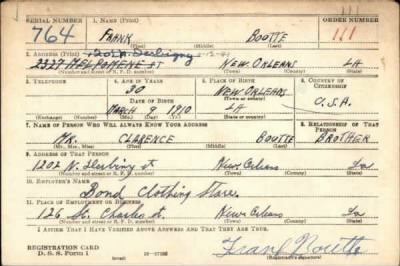 SERIAL NUMBER 1. NAME (Print) ORDER NUMBER
764 FRANK BOUTTE 111
(First) (Middle) (Last)
2. ADDRESS (Print) 1202 N. Derbigny
2327 MELPOMENE ST NEW ORLEANS LA
(Number and street or R. F. D. number) (Town) (County) (State)
3. TELEPHONE 4. AGE IN YEARS 5. PLACE OF BIRTH 6. COUNTRY OF CITIZENSHIP
30 NEW ORLEANS
DATE OF BIRTH (Town or county)
MARCH 9 1910 LA U.S.A.
(Exchange) (Number) (Mo.) (Day) (Yr.) (State or country)
7. NAME OF PERSON WHO WILL ALWAYS KNOW YOUR ADDRESS 8. RELATIONSHIP OF THAT PERSON
MR. CLARENCE BOUTTE BROTHER
(Mr., Mrs., Miss) (First) (Middle) (Last)
9. ADDRESS OF THAT PERSON
1202 N. Derbigny st New Orleans La
(Number and street or R. F. D. number) (Town) (County) (State)
10. EMPLOYER'S NAME
Bond Clothing Store
11. PLACE OF EMPLOYMENT OR BUSINESS
126 St. Charles st. New Orleans La
(Number and street or R. F. D. number) (Town) (County) (State)
I AFFIRM THAT I HAVE VERIFIED ABOVE ANSWERS AND THAT THEY ARE TRUE.
REGISTRATION CARD
D. S. S. Form 1 Frank Boutte
(Registrant's signature)